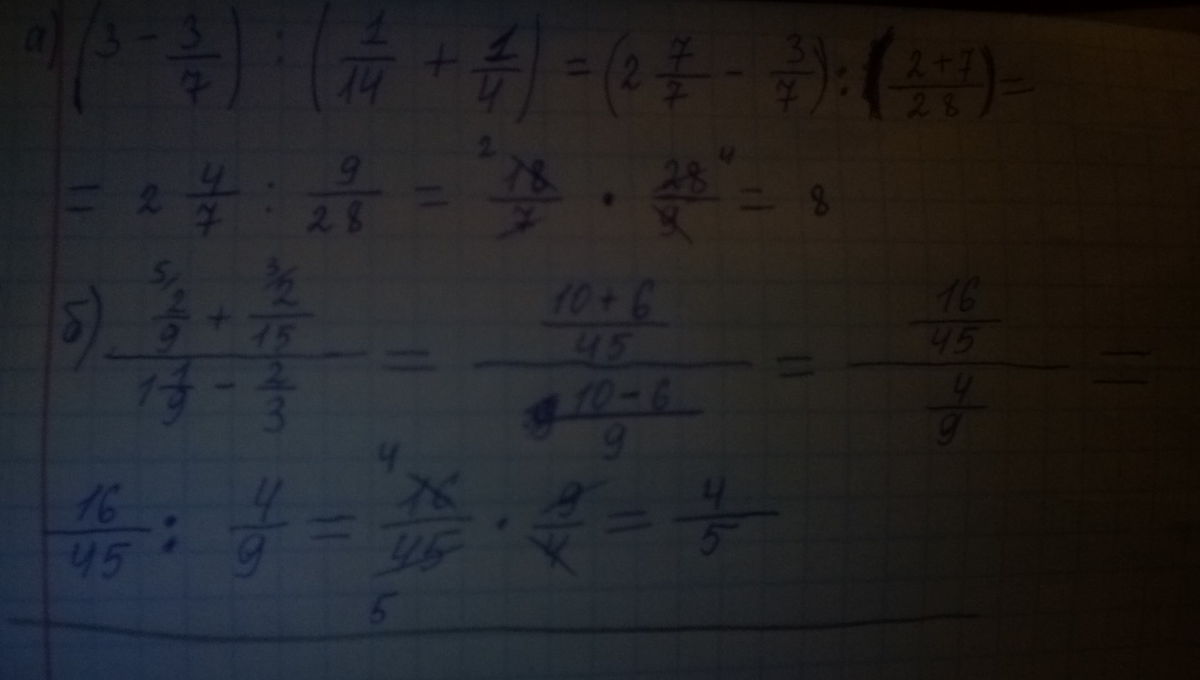 а) (3 - 3/7) : (1/14 + 1/4) = (2 7/7 - 3/7) : ((2+7)/28) =
= 2 4/7 : 9/28 = 18/7 2 · 28/9 4 = 8
б) (5/ 2/9 + 3/ 2/15)/(1 1/9 - 2/3) = ((10+6)/45)/((10-6)/9) = (16/45)/(4/9) =
16/45 : 4/9 = 4 16/45 5 · 9/4 = 4/5